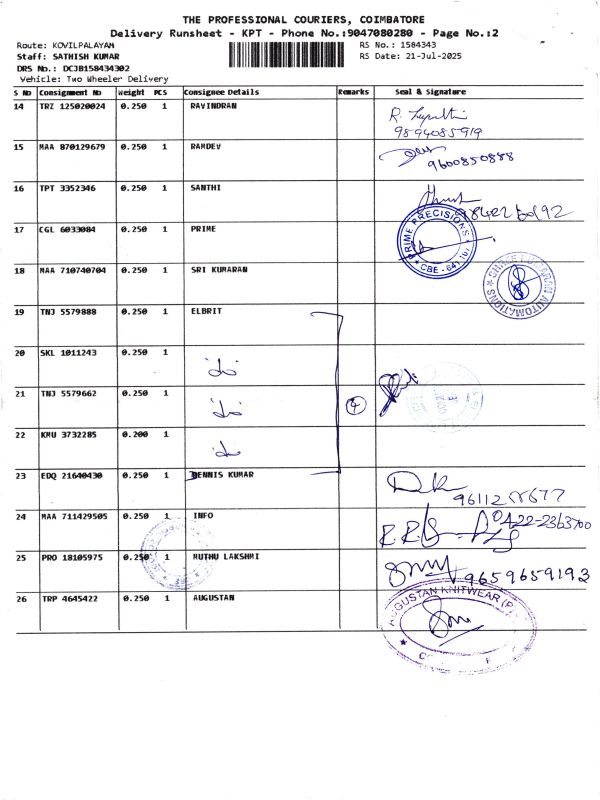 THE PROFESSIONAL COURIERS, COIMBATORE
Delivery Runsheet - KPT - Phone No.:9047080280 - Page No.:2
Route: KOVILPALAYAM
RS No.: 1584343
Staff: SATHISH KUMAR
RS Date: 21-Jul-2025
DRS No.: DCJB158434302
Vehicle: Two Wheeler Delivery
S No Consignment No Weight PCS Consignee Details Remarks Seal & Signature
14 TRZ 125020024 0.250 1 RAVINDRAN
9894085919
15 MAA 870129679 0.250 1 RAMDEV
9600850888
16 TPT 3352346 0.250 1 SANTHI
17 CGL 6033084 0.250 1 PRIME
PRIME PRECISIONS
CBE - 641 107
18 MAA 710740704 0.250 1 SRI KUMARAN
AUTOMATIONS
19 TNJ 5579888 0.250 1 ELBRIT
20 SKL 1011243 0.250 1
21 TNJ 5579662 0.250 1
4
22 KMU 3732285 0.200 1
23 EDQ 21640430 0.250 1 DENNIS KUMAR
24 MAA 711429505 0.250 1 INFO
0422-2363700
25 PRO 18105975 0.250 1 MUTHU LAKSHMI
9659659193
26 TRP 4645422 0.250 1 AUGUSTAN
AUGUSTAN KNITWEAR (P)